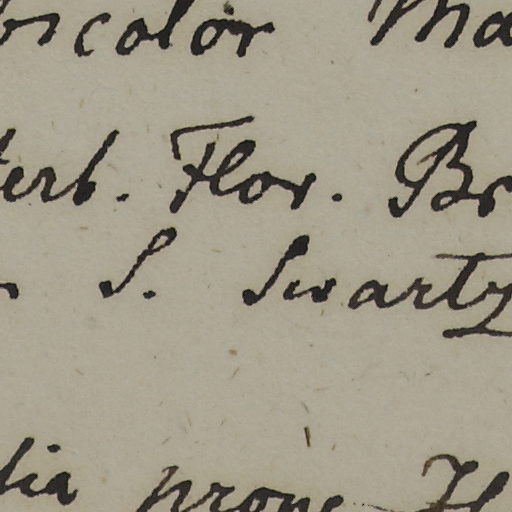 bicolor Ma
erb. Flor. Br
S. Swartz
lia prope H